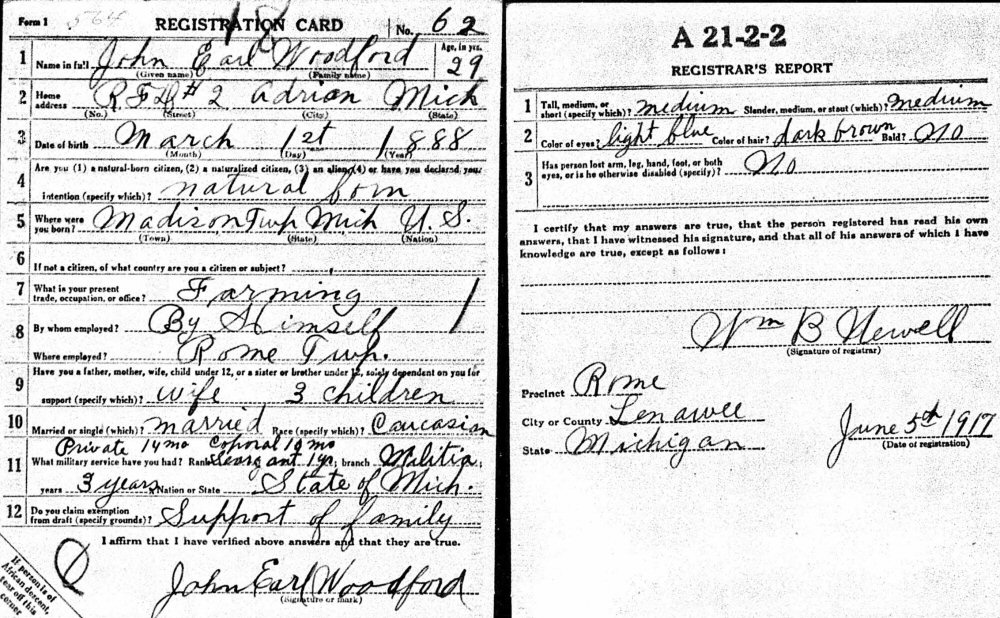 Form 1 564 REGISTRATION CARD 18 No. 62
1 Name in full John Earl Woodford Age, in yrs. 29
(Given name) (Family name)
2 Home address RFD #2 Adrian Mich
(No.) (Street) (City) (State)
3 Date of birth March 1st 1888
(Month) (Day) (Year)
4 Are you (1) a natural-born citizen, (2) a naturalized citizen, (3) an alien, (4) or have you declared your
intention (specify which)? natural born
5 Where were you born? Madison Twp Mich U. S.
(Town) (State) (Nation)
6 If not a citizen, of what country are you a citizen or subject?
7 What is your present trade, occupation, or office? Farming 1
8 By whom employed? By Himself
Where employed? Rome Twp.
9 Have you a father, mother, wife, child under 12, or a sister or brother under 12, solely dependent on you for
support (specify which)? wife 3 children
10 Married or single (which)? married Race (specify which)? Caucasian
Private 14 mo Coporal 10 mo
11 What military service have you had? Rank Seargant 1 yr; branch Militia;
years 3 years Nation or State State of Mich.
12 Do you claim exemption from draft (specify grounds)? Support of family
I affirm that I have verified above answers and that they are true.
John Earl Woodford
(Signature or mark)
If person is of
African descent,
tear off this
corner
A 21-2-2
REGISTRAR'S REPORT
1 Tall, medium, or short (specify which)? medium Slender, medium, or stout (which)? medium
2 Color of eyes? light blue Color of hair? dark brown Bald? No
3 Has person lost arm, leg, hand, foot, or both
eyes, or is he otherwise disabled (specify)? No
I certify that my answers are true, that the person registered has read his own
answers, that I have witnessed his signature, and that all of his answers of which I have
knowledge are true, except as follows:
Wm B Newell
(Signature of registrar)
Precinct Rome
City or County Lenawee
State Michigan
June 5th 1917
(Date of registration)